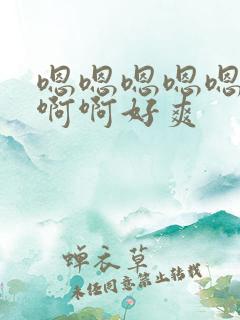 嗯嗯嗯嗯嗯
啊啊好爽
蝉衣草
未经同意禁止转载